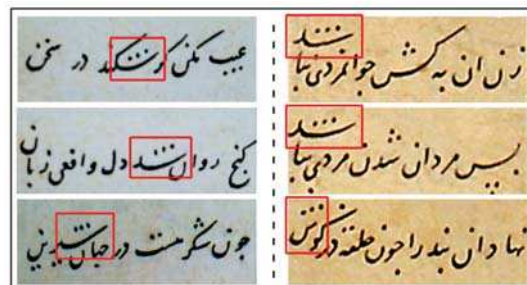 زن ان به کش جوانمردی نباشد
پس مردان شدن مردی نباشد
نهاد ان بند را جون حلقه در کوش
عیب مکن کر شکند در سخن
کنج روان شد دل وافعی زبان
جون شکر هست در جهان شیرین